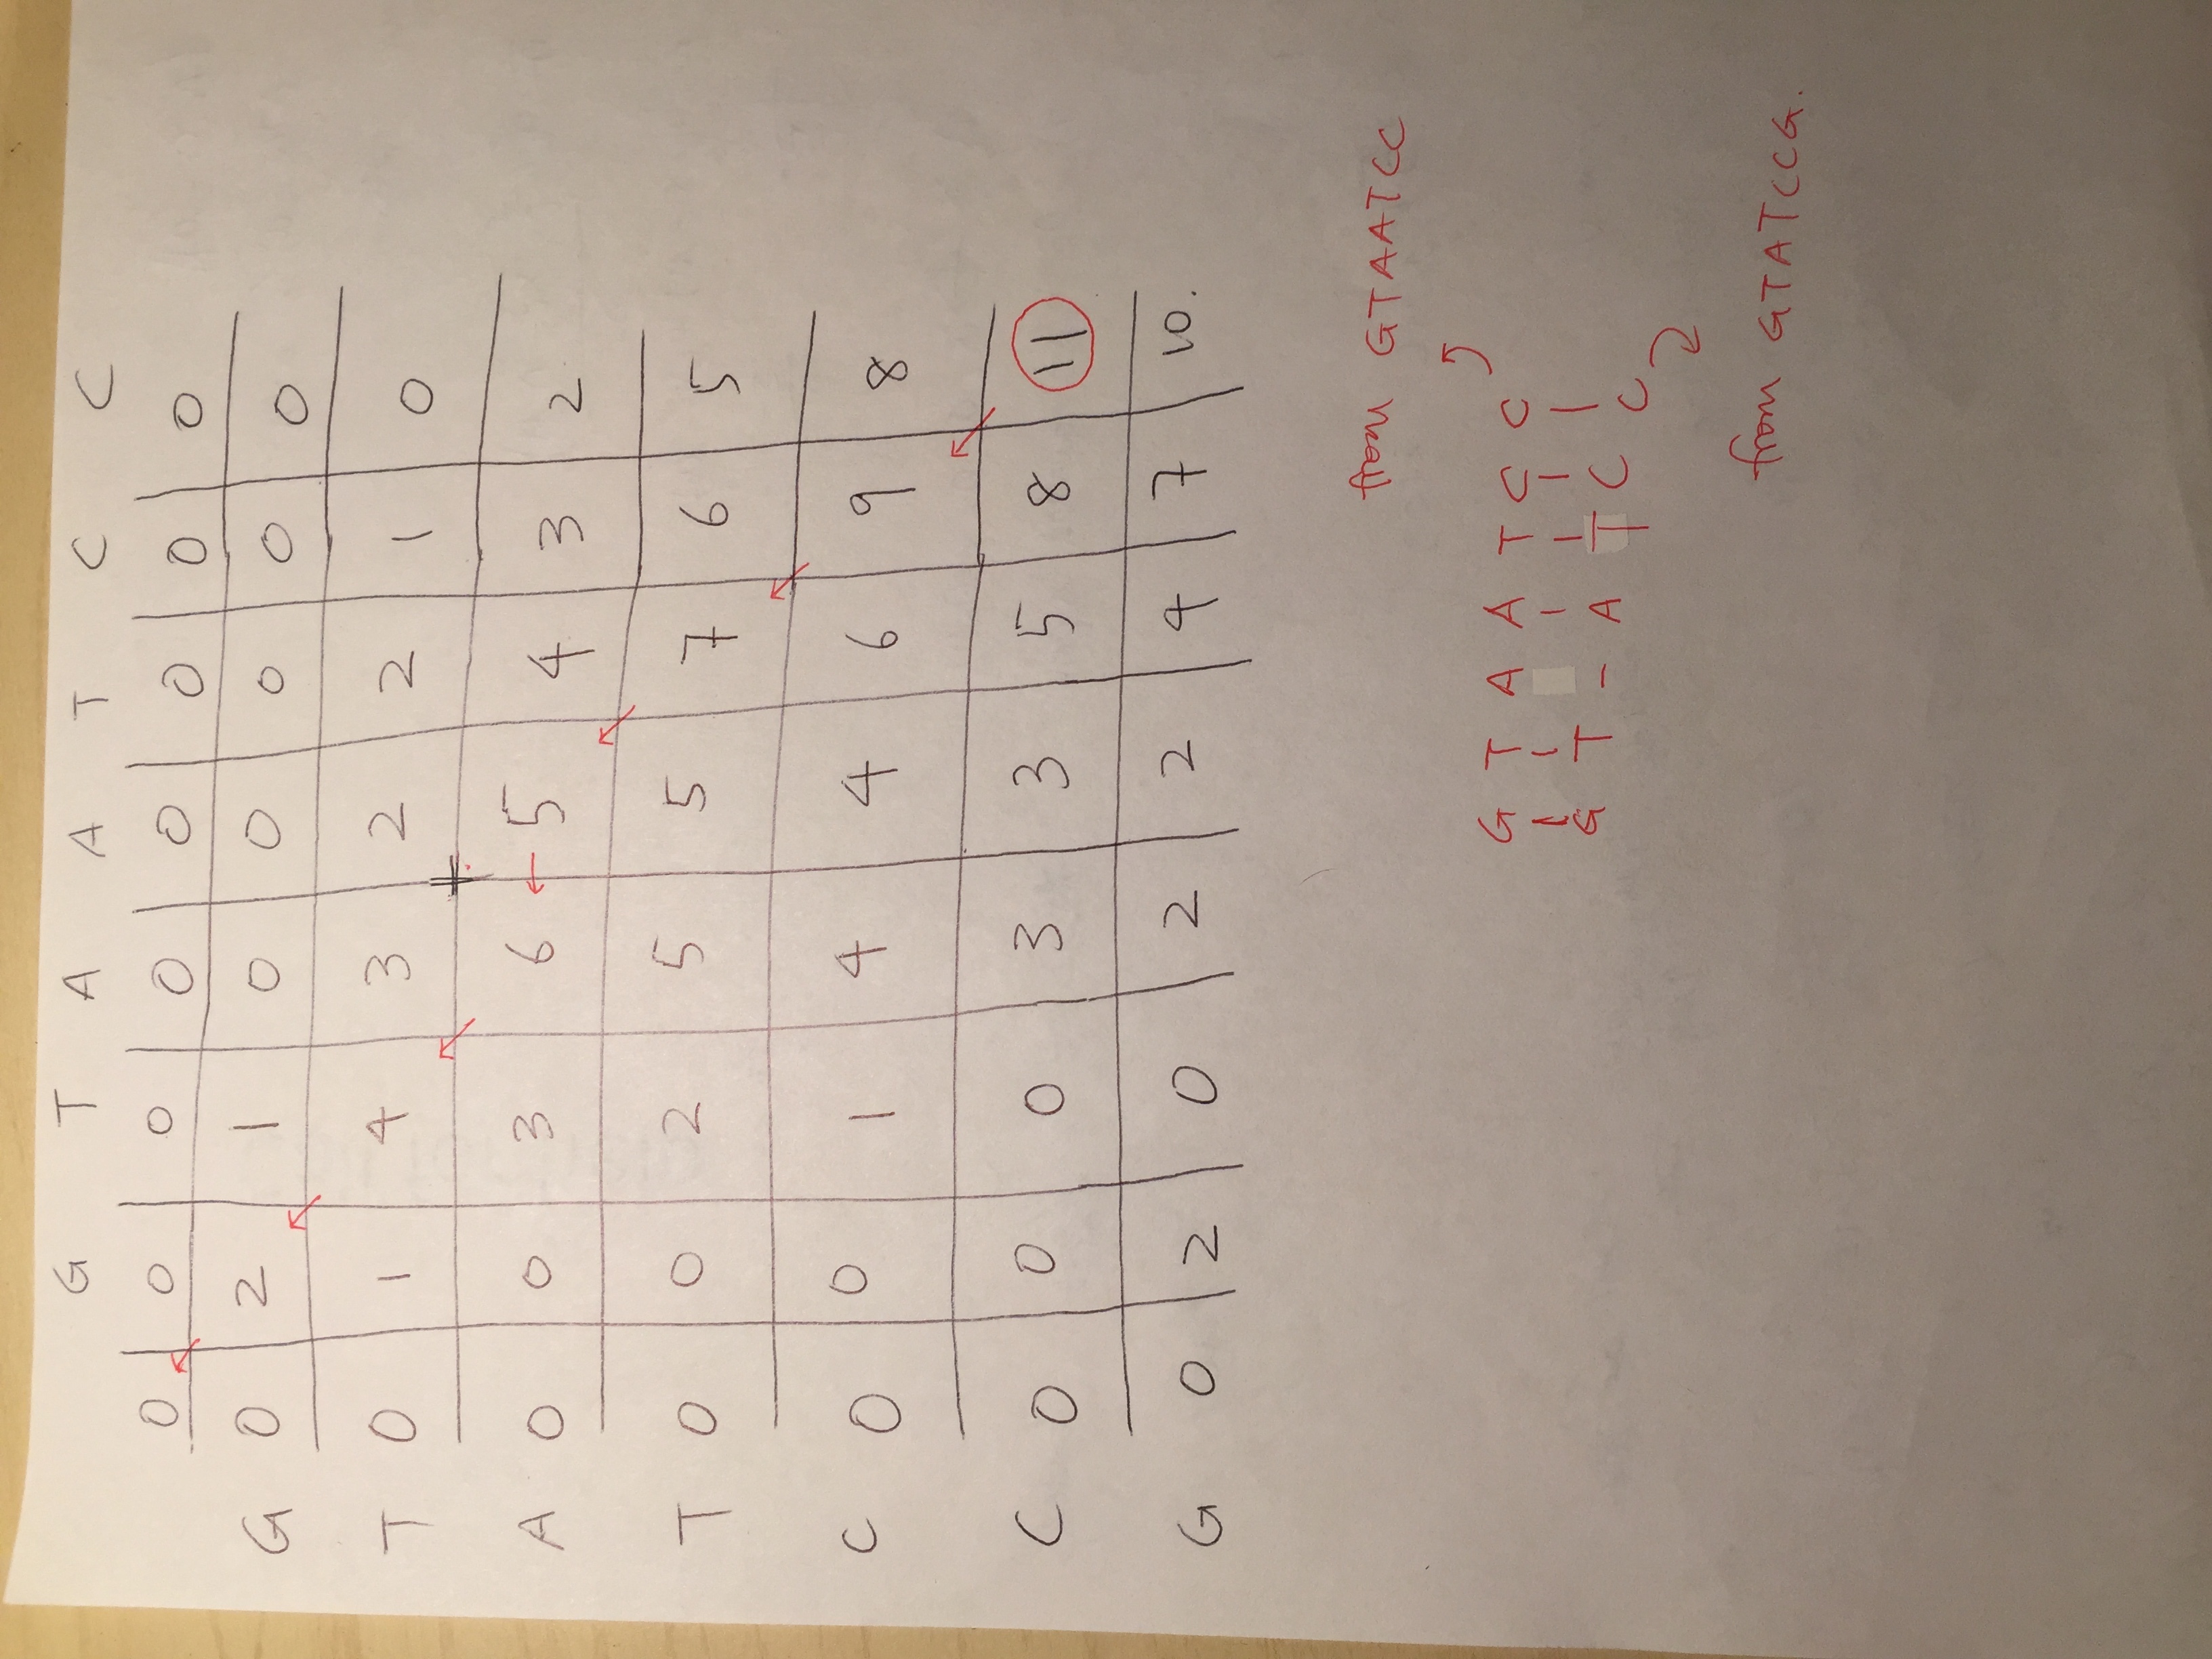 G T A A T C C
0 0 0 0 0 0 0 0
G 0 2 1 0 0 0 0 0
T 0 1 4 3 2 2 1 0
A 0 0 3 6 ← 5 4 3 2
T 0 0 2 5 5 7 6 5
C 0 0 1 4 4 6 9 8
C 0 0 0 3 3 5 8 11
G 0 2 0 2 2 4 7 10.
from GTAATCC
G T A A T C C
| |   | | | |
G T - A T C C
from GTATCCG.